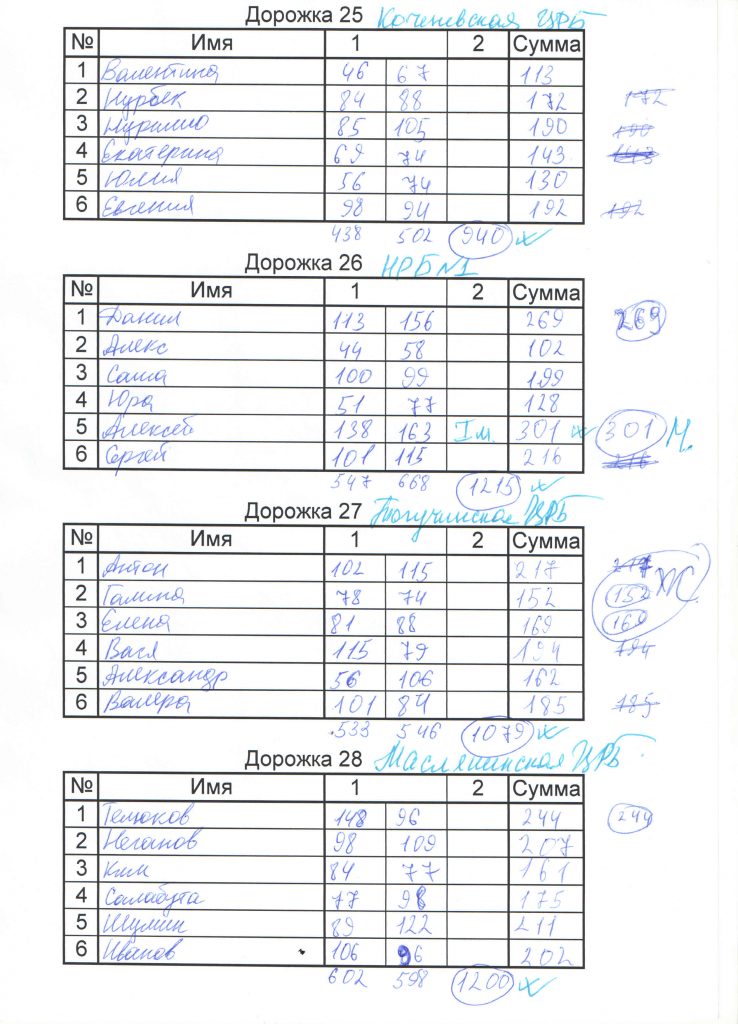 Дорожка 25 Коченевская ЦРБ
№ Имя 1 2 Сумма
1 Валентина 46 67 113
2 Нурбек 84 88 172 172
3 85 105 190 190
4 Екатерина 69 74 143 143
5 Юлия 56 74 130
6 Евгения 98 94 192 192
438 502 940
Дорожка 26 НРБ №1
№ Имя 1 2 Сумма
1 Данил 113 156 269 269
2 Алекс 44 58 102
3 Саша 100 99 199
4 Юра 51 77 128
5 Алексей 138 163 Iм. 301 301 М.
6 Сергей 101 115 216 216
547 668 1215
Дорожка 27 Тогучинская ЦРБ
№ Имя 1 2 Сумма
1 Антон 102 115 217 217
2 Галина 78 74 152 152 Ж.
3 Елена 81 88 169 169
4 Вася 115 79 194 194
5 Александр 56 106 162
6 Валера 101 84 185 185
533 546 1079
Дорожка 28 Маслянинская ЦРБ
№ Имя 1 2 Сумма
1 Телюков 148 96 244 244
2 Неганов 98 109 207
3 Ким 84 77 161
4 Салабута 77 98 175
5 Шумин 89 122 211
6 Иванов 106 96 202
602 598 1200